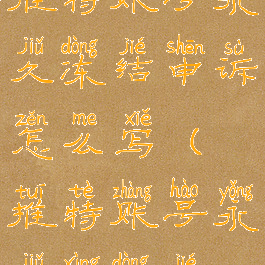 jiǔ dòng jié shēn sù
久冻结申诉
zěn me xiě
怎么写(
tuī tè zhàng hào yǒng
推特账号永